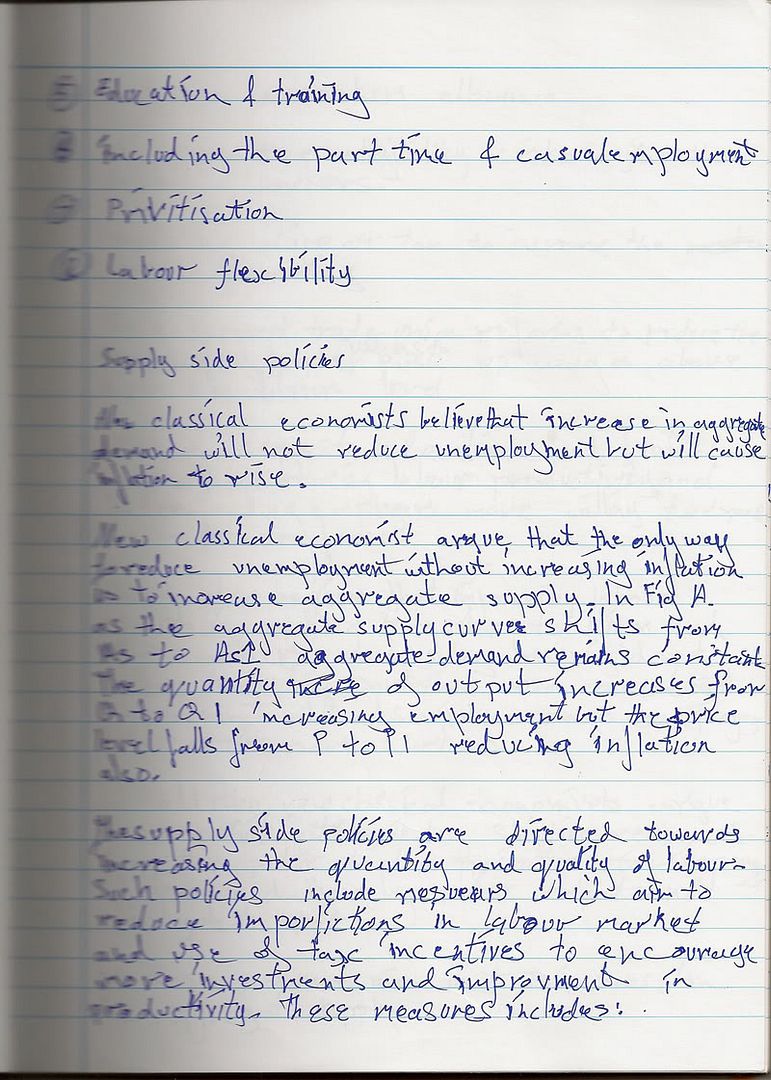 ⑤ Education & training
⑥ including the part time & casual employment
⑦ Privitisation
⑧ Labour flexibility
Supply side policies
the classical economists believe that increase in aggregate
demand will not reduce unemployment but will cause
inflation to rise.
New classical economist argue that the only way
to reduce unemployment without increasing inflation
is to increase aggregate supply. In Fig A.
as the aggregate supply curves shifts from
As to As1 aggregate demand remains constant
The quantity of output increases from
Q to Q1 increasing employment but the price
level falls from P to P1 reducing inflation
also.
The supply side policies are directed towards
increasing the quantity and quality of labour.
Such policies include which aim to
reduce imporfictions in labour market
and use of tax incentives to encourage
more investments and improvment in
productivity. These measures includes: